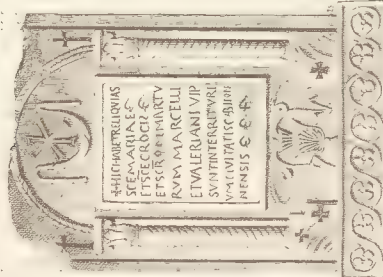 ✝ HIC HABITR RELIQVIAS
SCE MARIA E
ETSCE CROCIS E
ETSCRO M MARTV
RVM MARCELLI
ET VALERIANI VIP
SVNTINTERRITVRI
VM CIVITATISC
NENSIS